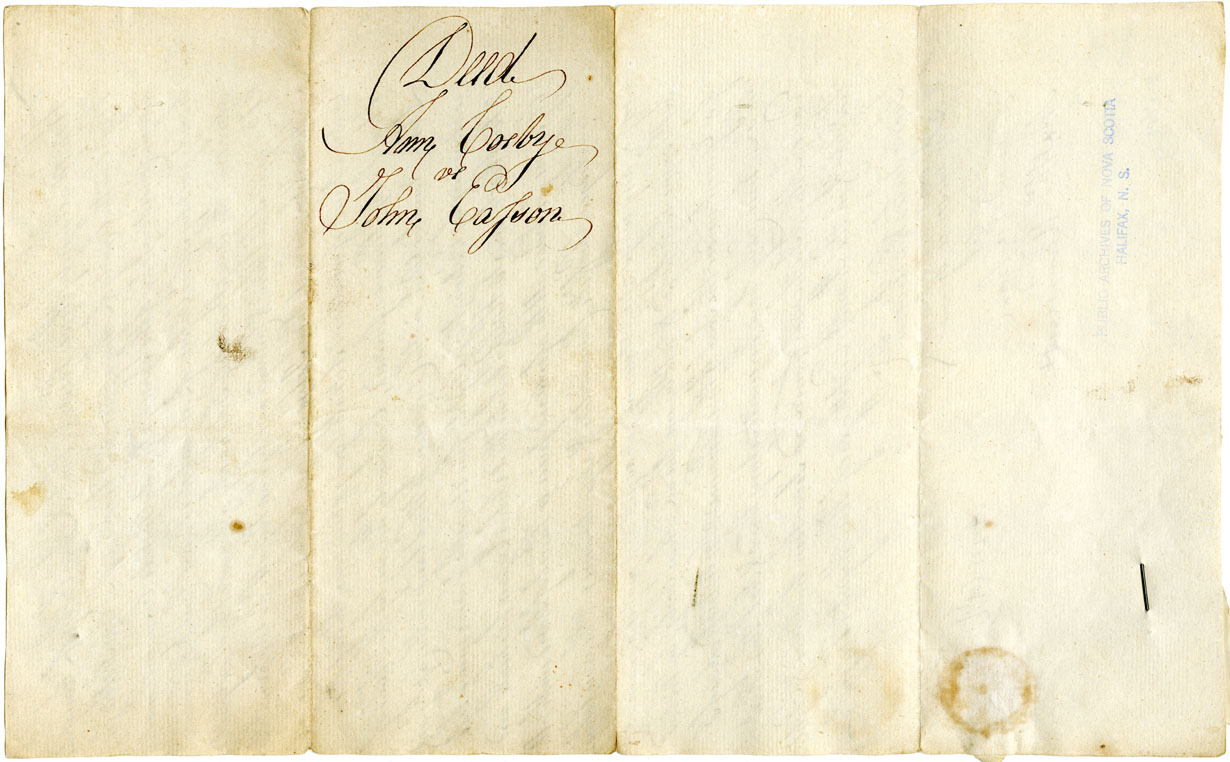 Deed
Ann Cosby
vs
John Easson
PUBLIC ARCHIVES OF NOVA SCOTIA
HALIFAX, N. S.